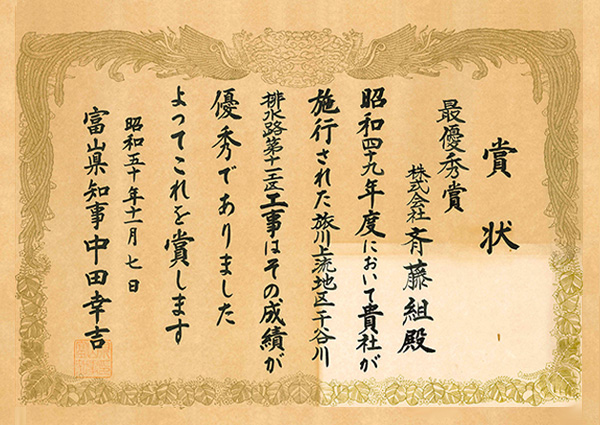 賞状
最優秀賞
株式会社 斉藤組殿
昭和四十九年度において貴社が
施行された旅川上流地区千谷川
排水路第十二工区工事はその成績が
優秀でありました
よってこれを賞します
昭和五十年十一月七日
富山県知事 中田幸吉